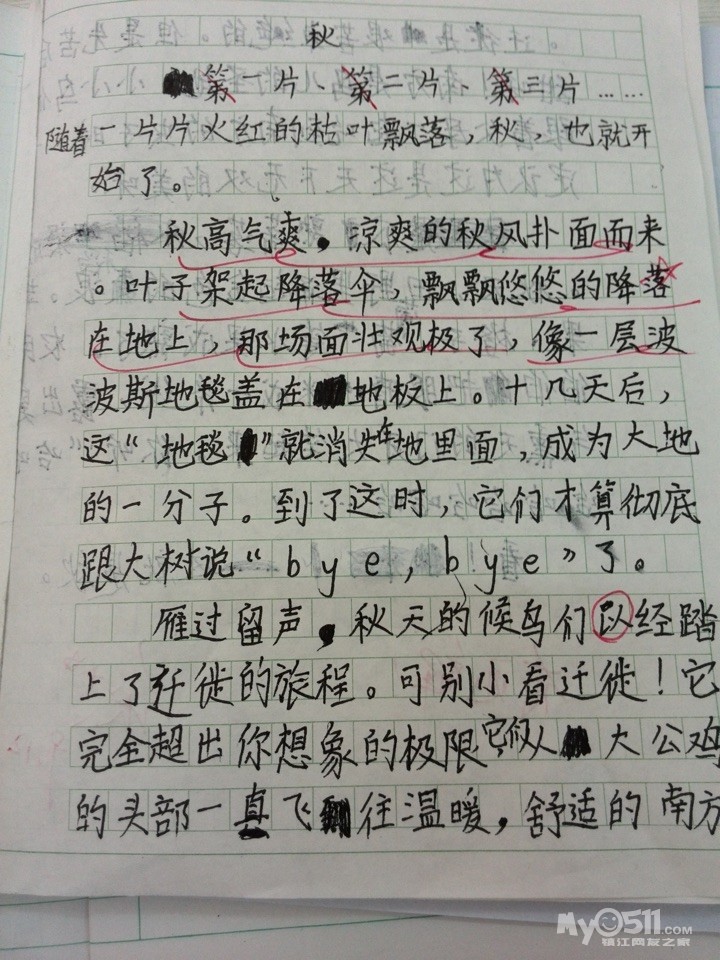 秋
第一片、第二片、第三片……
随着一片片火红的枯叶飘落，秋，也就开
始了。
秋高气爽，凉爽的秋风扑面而来
。叶子架起降落伞，飘飘悠悠的降落
在地上，那场面壮观极了，像一层波
波斯地毯盖在地板上。十几天后，
这“地毯”就消失在地里面，成为大地
的一分子。到了这时，它们才算彻底
跟大树说“bye，bye”了。
雁过留声，秋天的候鸟们以经踏
上了迁徙的旅程。可别小看迁徙！它
完全超出你想象的极限，它们从大公鸡
的头部一直飞往温暖，舒适的南方
My0511.com
镇江网友之家